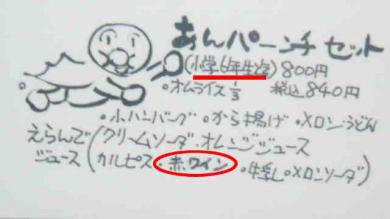 あんパーンチセット
(小学6年生迄) 800円
・オムライス1/3 税込840円
・小ハンバーグ ・から揚げ ・メロン・うどん
えらんで (クリームソーダ・オレンジジュース
ジュース (カルピス・赤ワイン・牛乳・メロンソーダ)